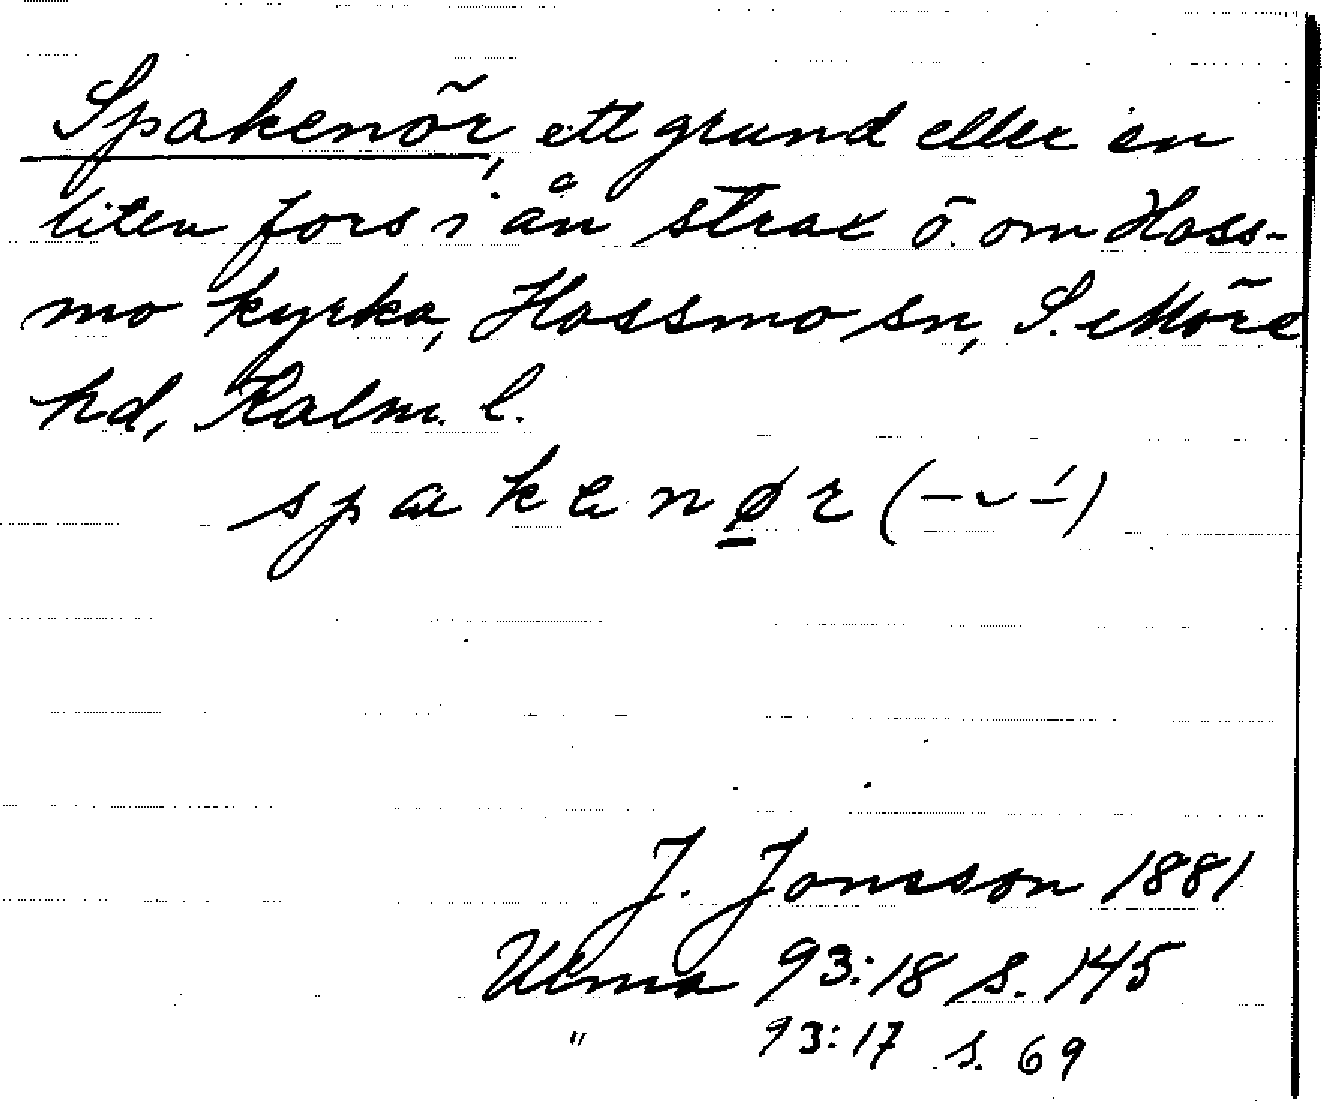 Spakenör, ett grund eller en
liten fors i ån strax ö. om Hoss-
mo kyrka, Hossmo sn, S. Möre
hd, Kalm. l.
spakenør (– ⌣ –́)
J. Jonsson 1881
Ulma 93:18 s. 145
" 93:17 s. 69